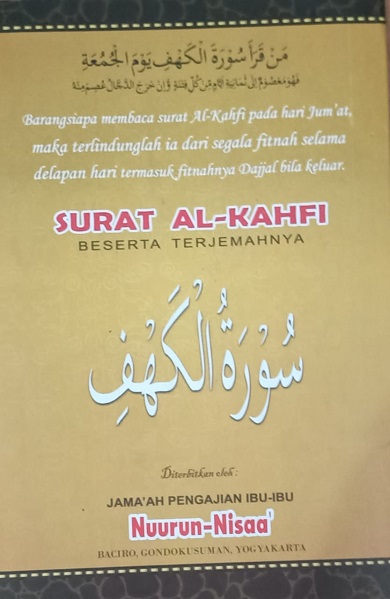 مَنْ قَرَأَ سُوْرَةَ الْكَهْفِ يَوْمَ الْجُمُعَةِ
فَهُوَ مَعْصُوْمٌ إِلَى ثَمَانِيَةِ أَيَّامٍ مِنْ كُلِّ فِتْنَةٍ وَإِنْ خَرَجَ الدَّجَّالُ عُصِمَ مِنْهُ
Barangsiapa membaca surat Al-Kahfi pada hari Jum'at,
maka terlindunglah ia dari segala fitnah selama
delapan hari termasuk fitnahnya Dajjal bila keluar.
SURAT AL-KAHFI
BESERTA TERJEMAHNYA
سُوْرَةُ الْكَهْفِ
Diterbitkan oleh :
JAMA'AH PENGAJIAN IBU-IBU
Nuurun-Nisaa'
BACIRO, GONDOKUSUMAN, YOGYAKARTA